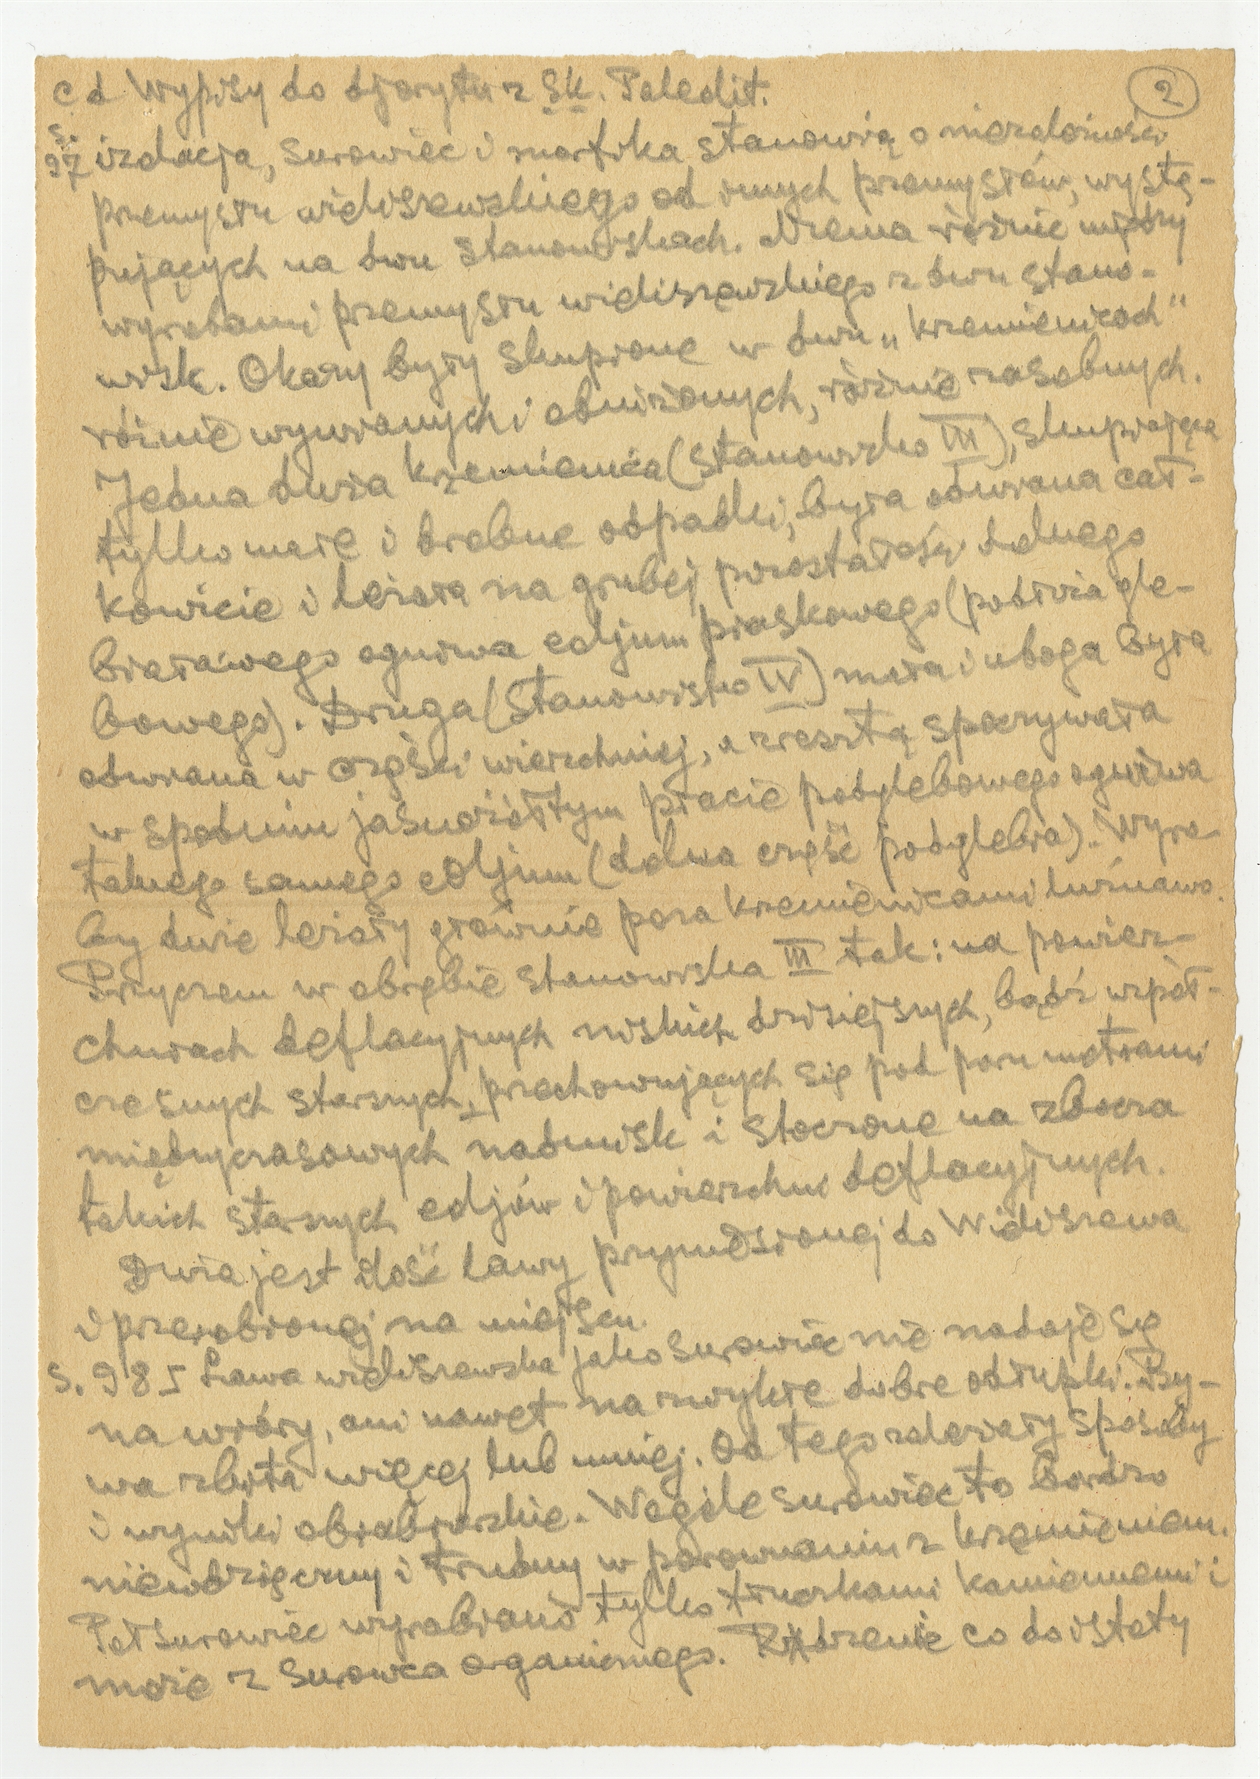 c d Wypisy do djorytu z Sk. Paleolit.
2
s. 97 izolacja, surowiec i morfika stanowią o niezależności
przemysłu wieliszewskiego od innych przemysłów, wystę-
pujących na dwu stanowiskach. Niema różnic między
wyrobami przemysłu wieliszewskiego z dwu stano-
wisk. Okazy były skupione w dwu „krzemienicach"
różnie wywianych i obniżonych, różnie zasobnych.
Jedna duża krzemienica (stanowisko III), skupiająca
tylko małe i drobne odpadki, była odwiana cał-
kowicie i leżała na grubej pozostałości dolnego
białawego ogniwa eoljum piaskowego (podłoża gle-
bowego). Druga (stanowisko IV) mała i uboga była
odwiana w części wierzchniej, a zresztą spoczywała
w spodnim jasnożółtym płacie podglebowego ogniwa
takiego samego eoljum (dolna część podglebia). Wyro-
by dwie leżały głównie poza krzemienicami luźnawo.
Przyczem w obrębie stanowiska III tak: na powierz-
chniach deflacyjnych niskich dzisiejszych, bądź współ-
czesnych starszych, przechowujących się pod
międzyczasowych nadmisk i stoczone na zbocza
takich starszych eoljów i powierzchni deflacyjnych.
Duża jest ilość lawy przyniesionej do Wieliszewa
i przerobionej na miejscu.
s. 98 Ława wieliszewska jako surowiec nie nadaje się
na wióry, ani nawet na zwykłe dobre odłupki. By-
wa zbita więcej lub mniej. Od tego zależały sposoby
i wyniki obróbki. Wogóle surowiec to bardzo
niewdzięczny i trudny w porównaniu z krzemieniem.
Półsurowiec wyrabiano tylko tłuczkami kamiennemi i
może z surowca organicznego. Rdzenie co do istoty